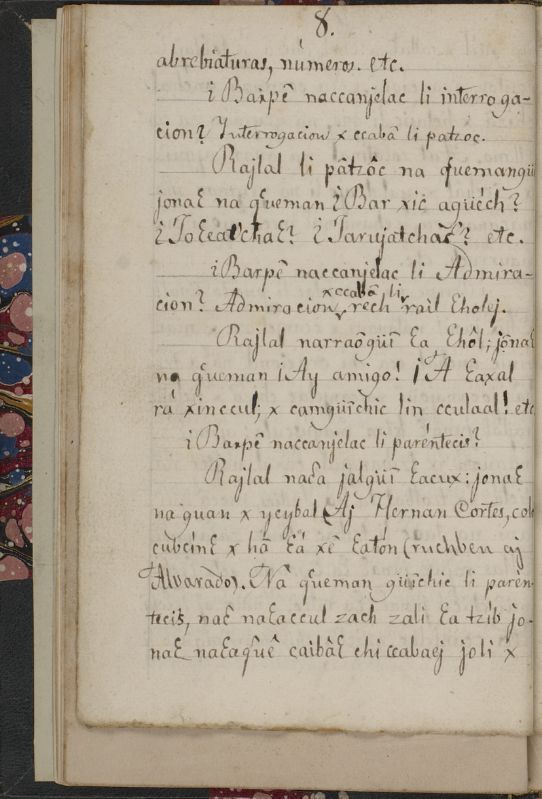 8.
abrebiaturas, números. etc.
¿Barpê naccanjelac li interroga-
cion? Interrogacion x ccabâ li patzoc.
Rajlal li pâtzôc na qŭemangüi
jonaꜫ na qŭeman ¿Bar xic agüéch?
¿ etc.
¿Barpê naccanjelac li Admira-
xccabâ li
cion? Admiracion, rech rail Ꜫholej.
Rajlal narraôgüi Ꜫa Ꜫhôl; jônaꜫ
na qŭeman ¡Ay amigo! ¡A Ꜫaxal
rá xinccul; x camgüichic lin cculaal! etc
¿Barpê naccanjelac li paréntecis?
Rajlal naꜫa jalgüi Ꜫacux: jonaꜫ
naguan x yeybal (Aj Hernan Cortes,
x hâ Ꜫá xê Ꜫatón (ruchbeu aj
Alvarado). Na qŭeman güichic li paren-
tecis, naꜫ naꜫaccul zach zali Ꜫa tzib jo-
naꜫ naꜫaqŭê caibâꜫ chi ccabaej joli x